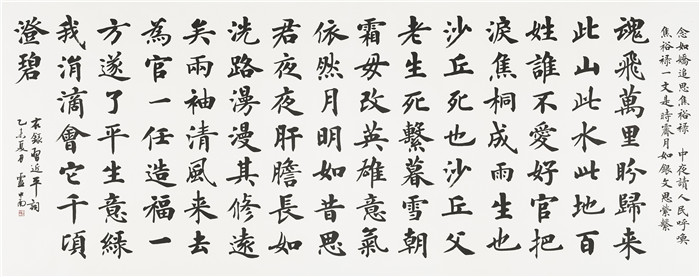 念奴嬌追思焦裕祿 中夜讀人民呼喚
焦裕祿一文是時霽月如銀文思縈繫
魂飛萬里盼歸來
此山此水此地百
姓誰不愛好官把
淚焦桐成雨生也
沙丘死也沙丘父
老生死繫暮雪朝
霜毋改英雄意氣
依然月明如昔思
君夜夜肝膽長如
洗路漫漫其修遠
矣兩袖清風來去
為官一任造福一
方遂了平生意綠
我涓滴會它千頃
澄碧
錄習近平詞
乙未夏月盧中南